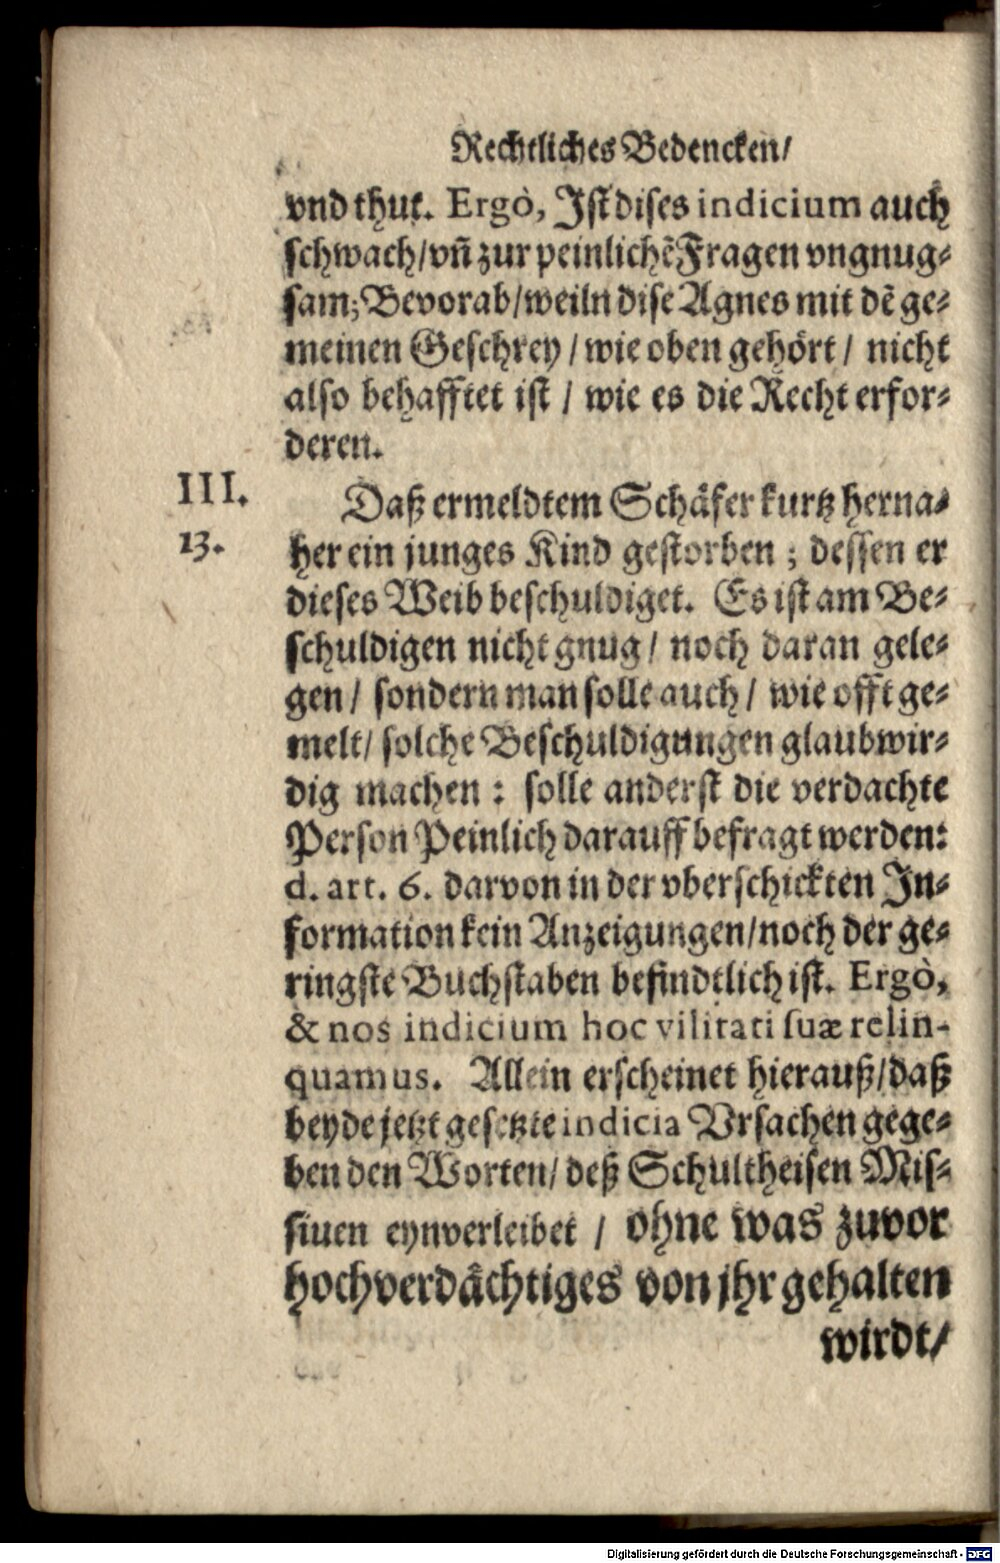 Rechtliches Bedencken/
vnd thut. Ergò, Ist dises indicium auch
schwach/vñ zur peinlichẽ Fragen vngnug-
sam; Bevorab/weiln dise Agnes mit dẽ ge-
meinen Geschrey / wie oben gehört / nicht
also behafftet ist / wie es die Recht erfor-
deren.
III.
Daß ermeldtem Schäfer kurtz herna-
13.
her ein junges Kind gestorben ; dessen er
dieses Weib beschuldiget. Es ist am Be-
schuldigen nicht gnug / noch daran gele-
gen / sondern man solle auch / wie offt ge-
melt/ solche Beschuldigungen glaubwir-
dig machen : solle anderst die verdachte
Person Peinlich darauff befragt werden:
d. art. 6. darvon in der vberschickten In-
formation kein Anzeigungen/noch der ge-
ringste Buchstaben befindtlich ist. Ergò,
& nos indicium hoc vilitati suæ relin-
quamus. Allein erscheinet hierauß/daß
beyde jetzt gesetzte indicia Vrsachen gege-
ben den Worten/ deß Schultheisen Mis-
siuen eynverleibet / ohne was zuvor
hochverdächtiges von jhr gehalten
wirdt/
Digitalisierung gefördert durch die Deutsche Forschungsgemeinschaft - DFG